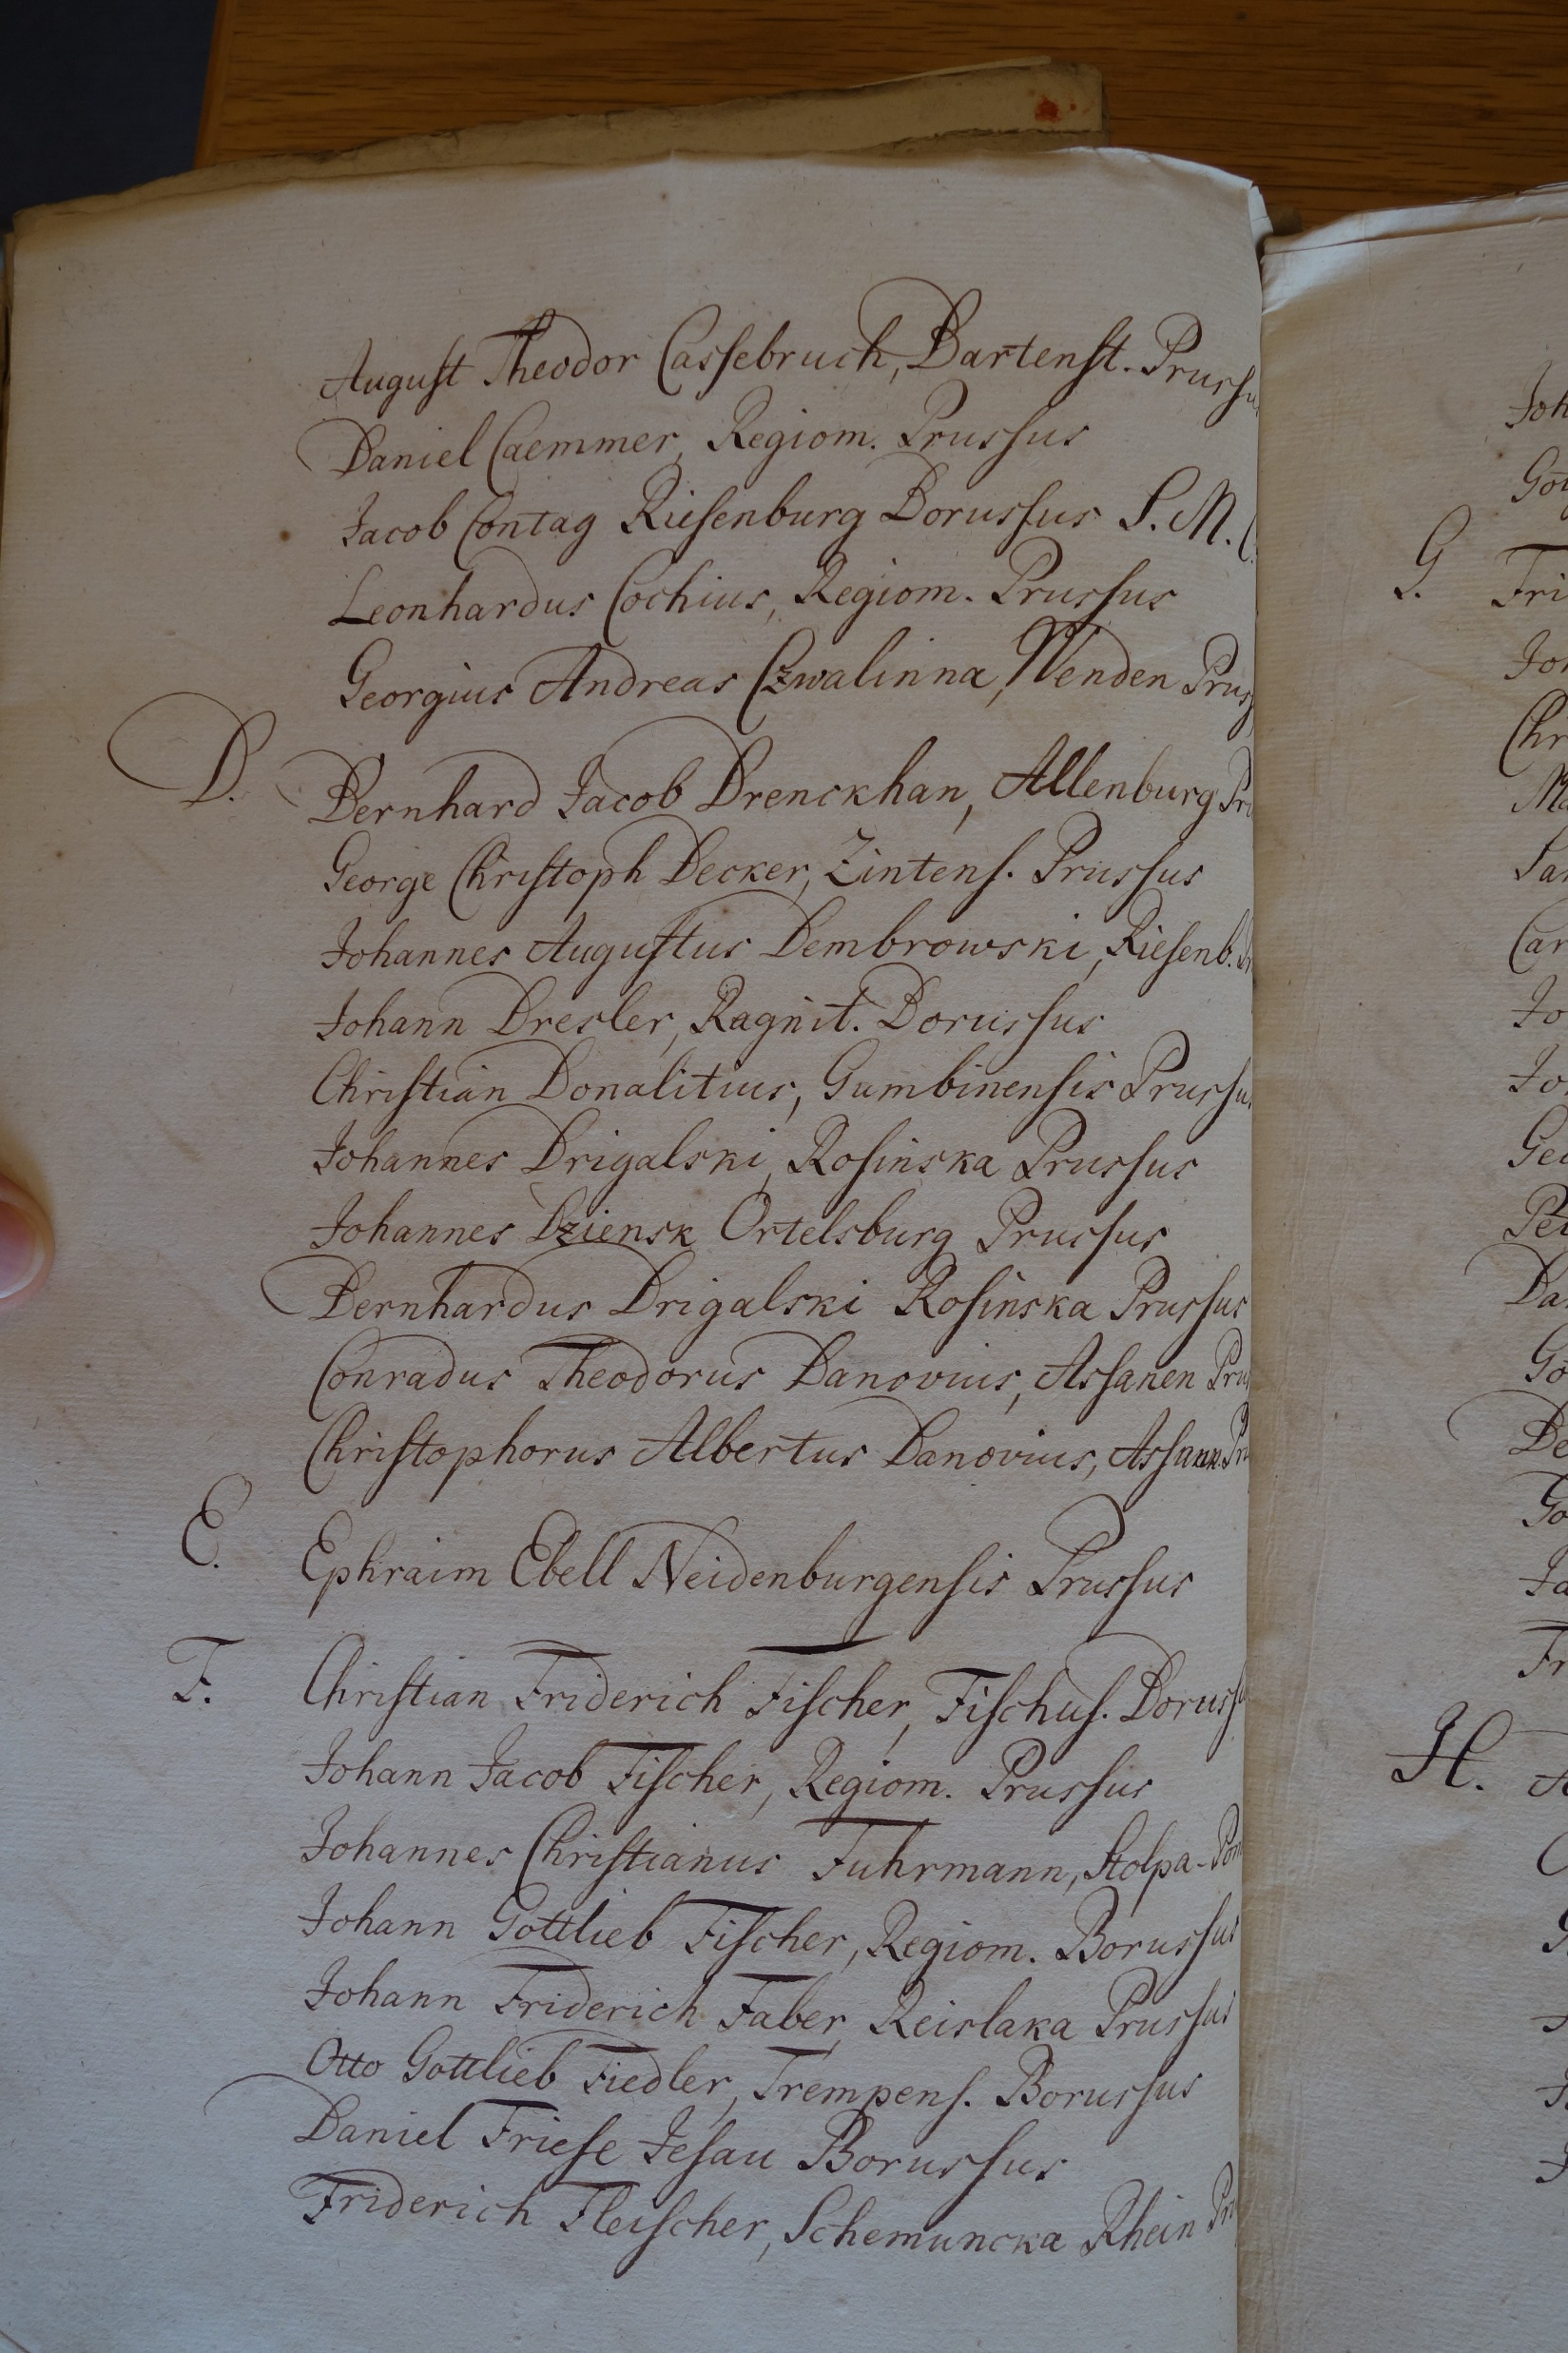 August Theodor Cassebruch, Bartenst. Prussu
Daniel Caemmer, Regiom. Prussus
Jacob Contag Riesenburg Borussus S. M. C
Leonhardus Cochius, Regiom. Prussus
Georgius Andreas Czwalinna, Wenden Prus
D. Bernhard Jacob Drenckhan, Allenburg Pr
George Christoph Decker, Zintens. Prussus
Johannes Augustus Dembrowski, Riesenb.
Johann Dresler, Ragnit. Borussus
Christian Donalitius, Gumbinensis Prussu
Johannes Drigalski, Rosinska Prussus
Johannes Dziensk Ortelsburg Prussus
Bernhardus Drigalski Rosinska Prussus
Conradus Theodorus Danovius, Assanen Pru
Christophorus Albertus Danovius, Pr
E. Ephraim Ebell Neidenburgensis Prussus
F. Christian Friderich Fischer, Fischus. Boruss
Johann Jacob Fischer, Regiom. Prussus
Johannes Christianus Fuhrmann, Stolpa-Pom
Johann Gottlieb Fischer, Regiom. Borussus
Johann Friderich Faber, Reislaka Prussus
Otto Gottlieb Fiedler, Trempens. Borussus
Daniel Friese Jesau Borussus
Friderich Fleischer, Schemuncka Rhein Pr
Joh
G. Fri
Chr
Car
Jo
Jo
Pet
Da
Go
De
Go
Ja
Fr
H.